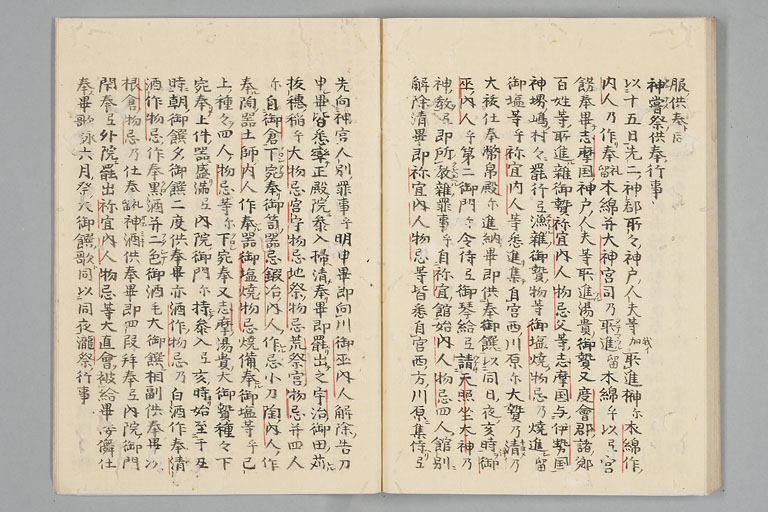 服供奉
神嘗祭供奉行事
以十五日先二神郡所々神戸人夫等加取進榊尓木綿作
内人乃作奉留木綿并大神宮司乃取進留木綿乎以弖宮
餝奉畢志摩国神戸人夫等取進湯貴御贄又度會郡諸郷
百姓等取進雜御贄祢宜内人物忌父等志摩国与伊勢国
神堺嶋村々罷行弖漁雜御贄物等御塩焼物忌乃焼進留
御塩等乎祢宜内人等悉進集自宮西川原尓大贄乃清乃
大祓仕奉幣帛殿尓進納畢即供奉御饌以同日夜亥時御
巫内人乎第二御門尓令侍弖御琴給弖請天照坐大神乃
神教弖即所教雜罪事乎自祢宜館始内人物忌四人館別
解除清畢即祢宜内人物忌等皆悉自宮西方川原集侍弖
先向神宮人別罪事乎明申畢即向川御巫内人解除告刀
申畢皆悉率正殿院参入掃清奉畢即罷出之宇治御田苅
抜穂稲乎大物忌宮守物忌地祭物忌荒祭宮物忌并四人
尓自御倉下宛奉御笥器忌鍛冶内人作忌小刀陶内人作
奉陶器土師内人作奉器御塩焼物忌焼備奉御塩等乎己
上種々四人物忌等尓下宛奉又志摩湯貴大御贄種々下
宛奉上件器盛満弖内院御門尓持参入弖亥時始至于丑
時朝御饌夕御饌二度供奉畢亦酒作物忌乃白酒作奉清
酒作物忌作奉黒酒并二色御酒毛大御饌相副供奉畢次
根倉物忌乃仕奉礼留神酒供奉畢即四段拝奉弖内院御門
閇奉弖外院罷出祢宜内人物忌等大直會被給畢
奉畢歌詠六月祭大御饌歌同以同夜瀧祭行事